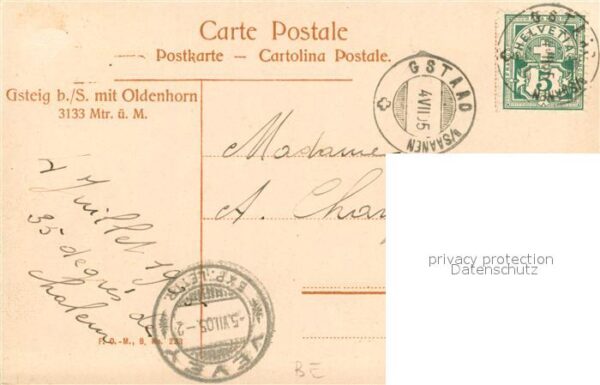 Carte Postale
Postkarte — Cartolina Postale.
Gsteig b./S. mit Oldenhorn
3133 Mtr. ü. M.
GSTAAD
4 VII 05
B/SAANEN
HELVETIA
5
GSTAAD
Madame
A.
Juillet
35 degrés de
chaleur
VEVEY
EXP. LETTR.
5.VII.05.-2
BE
privacy protection
Datenschutz